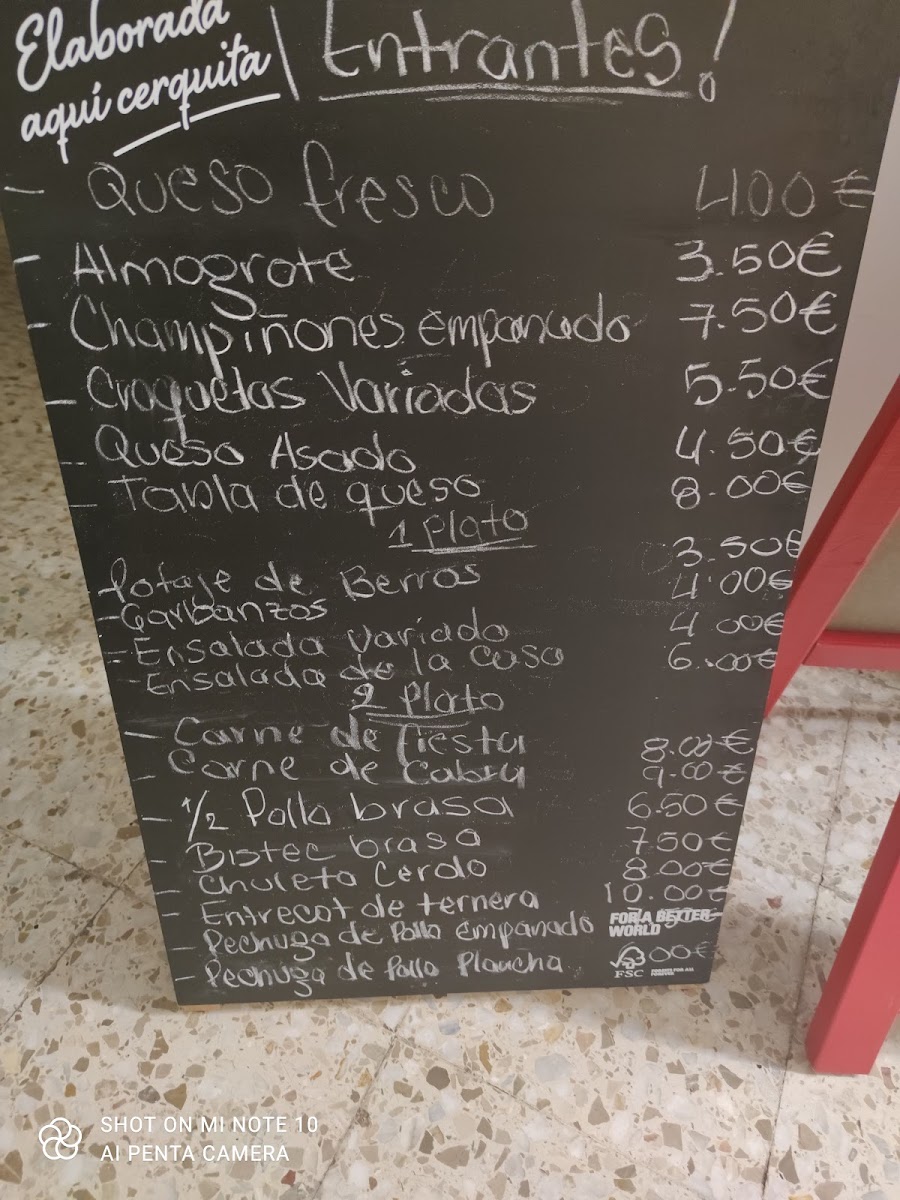 Elaborada
aquí cerquita
Entrantes!
- Queso fresco 4.00€
- Almogrote 3.50€
- Champiñones empanado 7.50€
- Croquetas Variadas 5.50€
- Queso Asado 4.50€
- Tabla de queso 8.00€
1 Plato
3.50€
Potaje de Berros 4.00€
- Garbanzos
- Ensalada variado 4.00€
- Ensalada de la casa 6.00€
2 Plato
- Carne de fiesta 8.00€
- Carne de Cabra 9.00€
- 1/2 Pollo brasa 6.50€
- Bistec brasa 7.50€
- Chuleta Cerdo 8.00€
- Entrecot de ternera 10.00€
- Pechuga de Pollo empanado
- Pechuga de Pollo Plancha 00€
FOR A BETTER
WORLD
FSC
SHOT ON MI NOTE 10
AI PENTA CAMERA